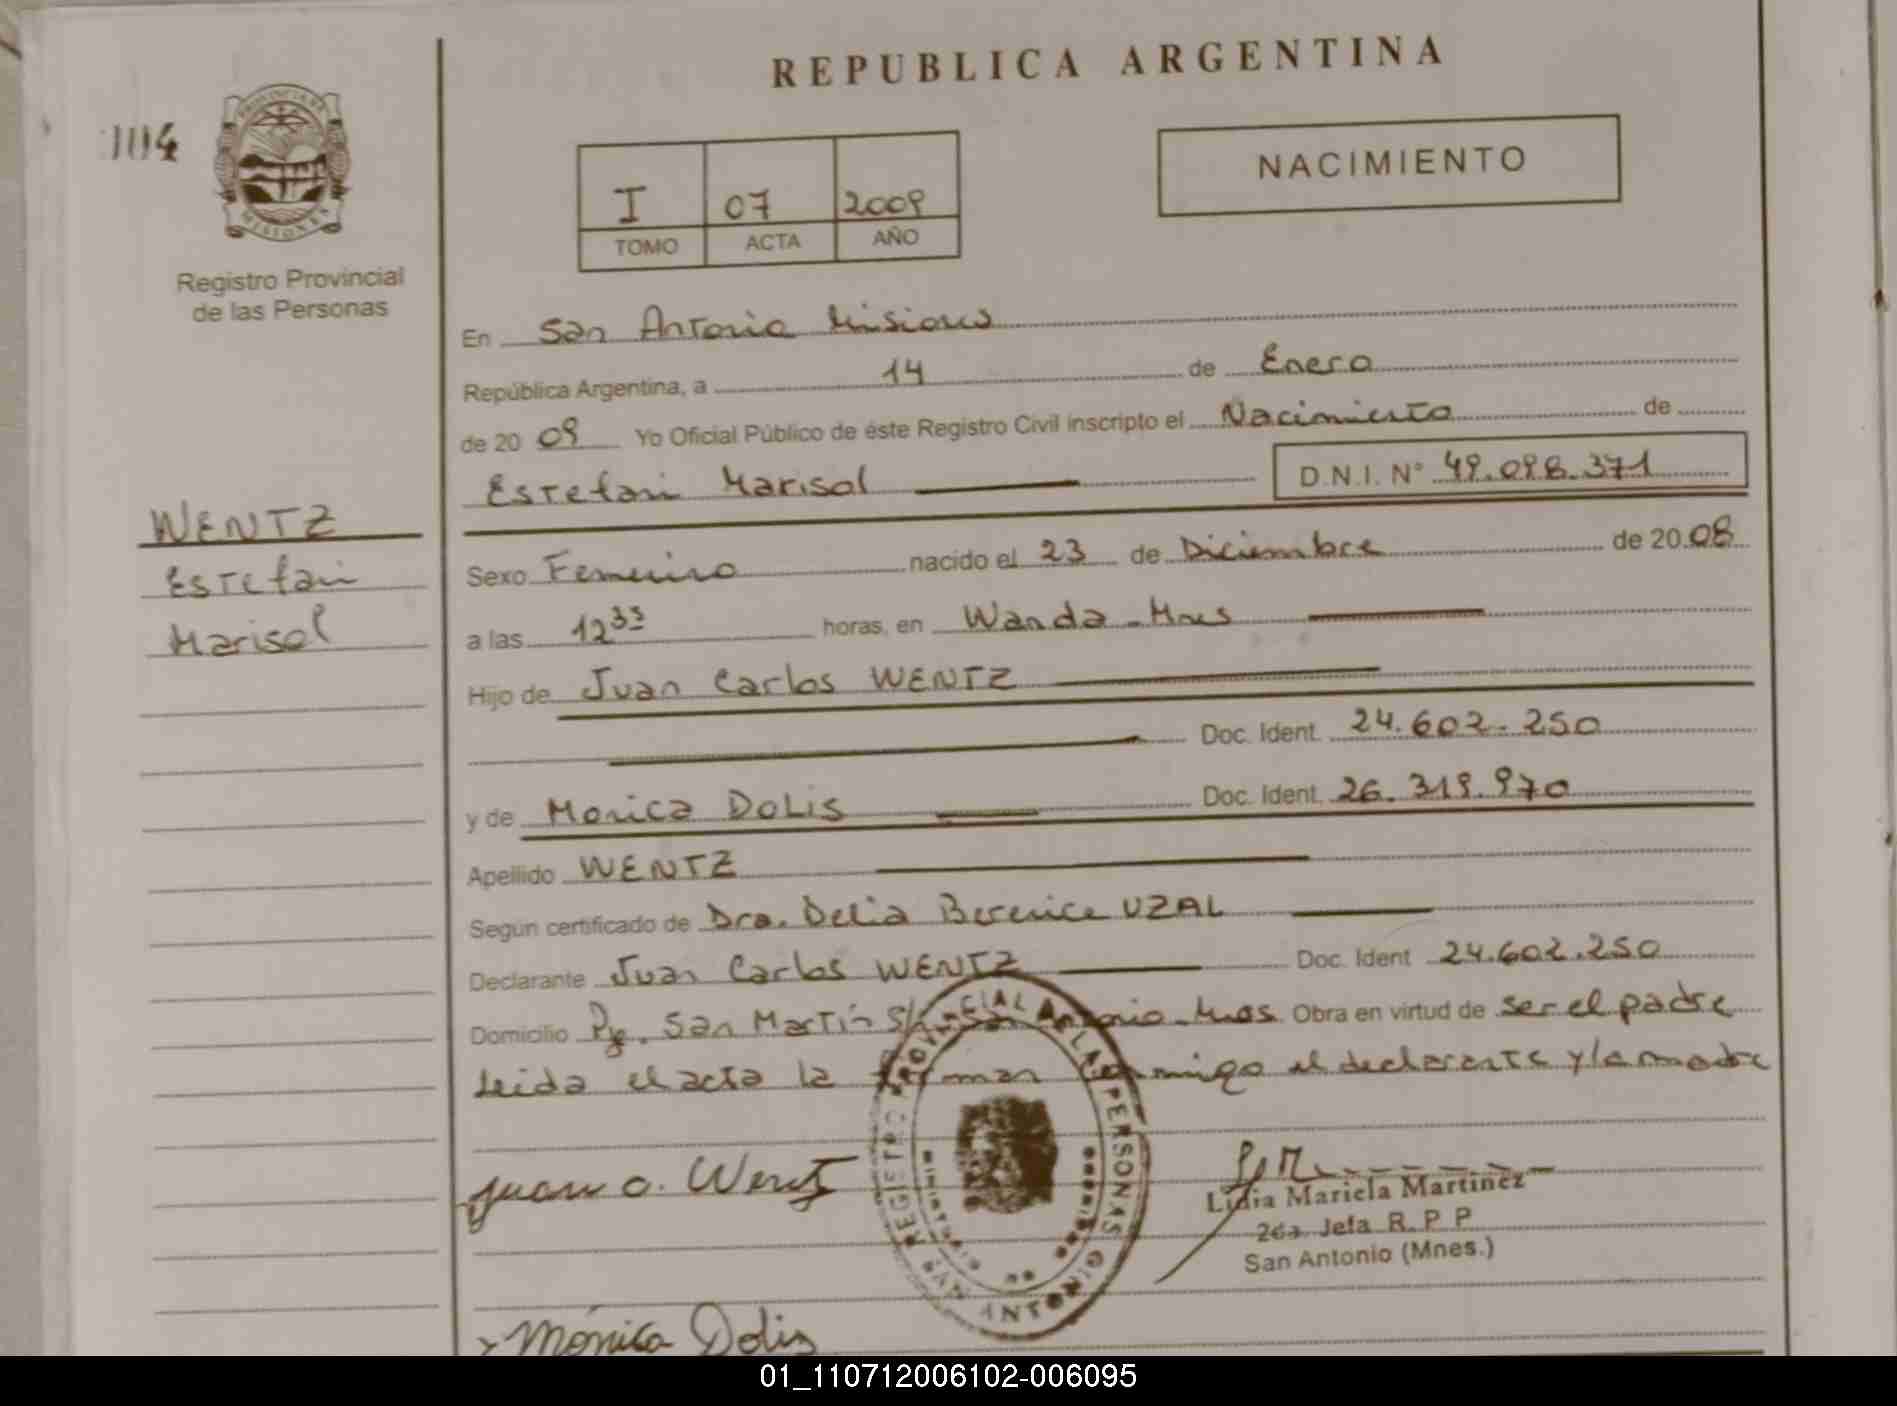 REPUBLICA ARGENTINA
1114
PROVINCIA DE
MISIONES
Registro Provincial
de las Personas
I 07 2009
TOMO ACTA AÑO
NACIMIENTO
En San Antonio Misiones
República Argentina, a 14 de Enero
de 20 09 Yo Oficial Público de éste Registro Civil inscripto el Nacimiento de
Estefani Marisol D.N.I. N° 49.098.371
WENTZ
Estefani
Marisol
Sexo Femenino nacido el 23 de Diciembre de 20 08
a las 12 33 horas, en Wanda - Mnes
Hijo de Juan Carlos WENTZ
Doc. Ident. 24.602.250
y de Monica DOLIS Doc. Ident. 26.319.970
Apellido WENTZ
Según certificado de Dra. Delia Berenice UZAL
Declarante Juan Carlos WENTZ Doc. Ident 24.602.250
Domicilio Pje. San Martín S/ Antonio - Mnes. Obra en virtud de ser el padre
Leida el acta la firman conmigo el declarante y la madre
REGISTRO PROVINCIAL DE LAS PERSONAS
SAN ANTONIO
Juan C. Wentz
Lidia Mariela Martinez
2da Jefa R. P P
San Antonio (Mnes.)
Mónica Dolis
01_110712006102-006095